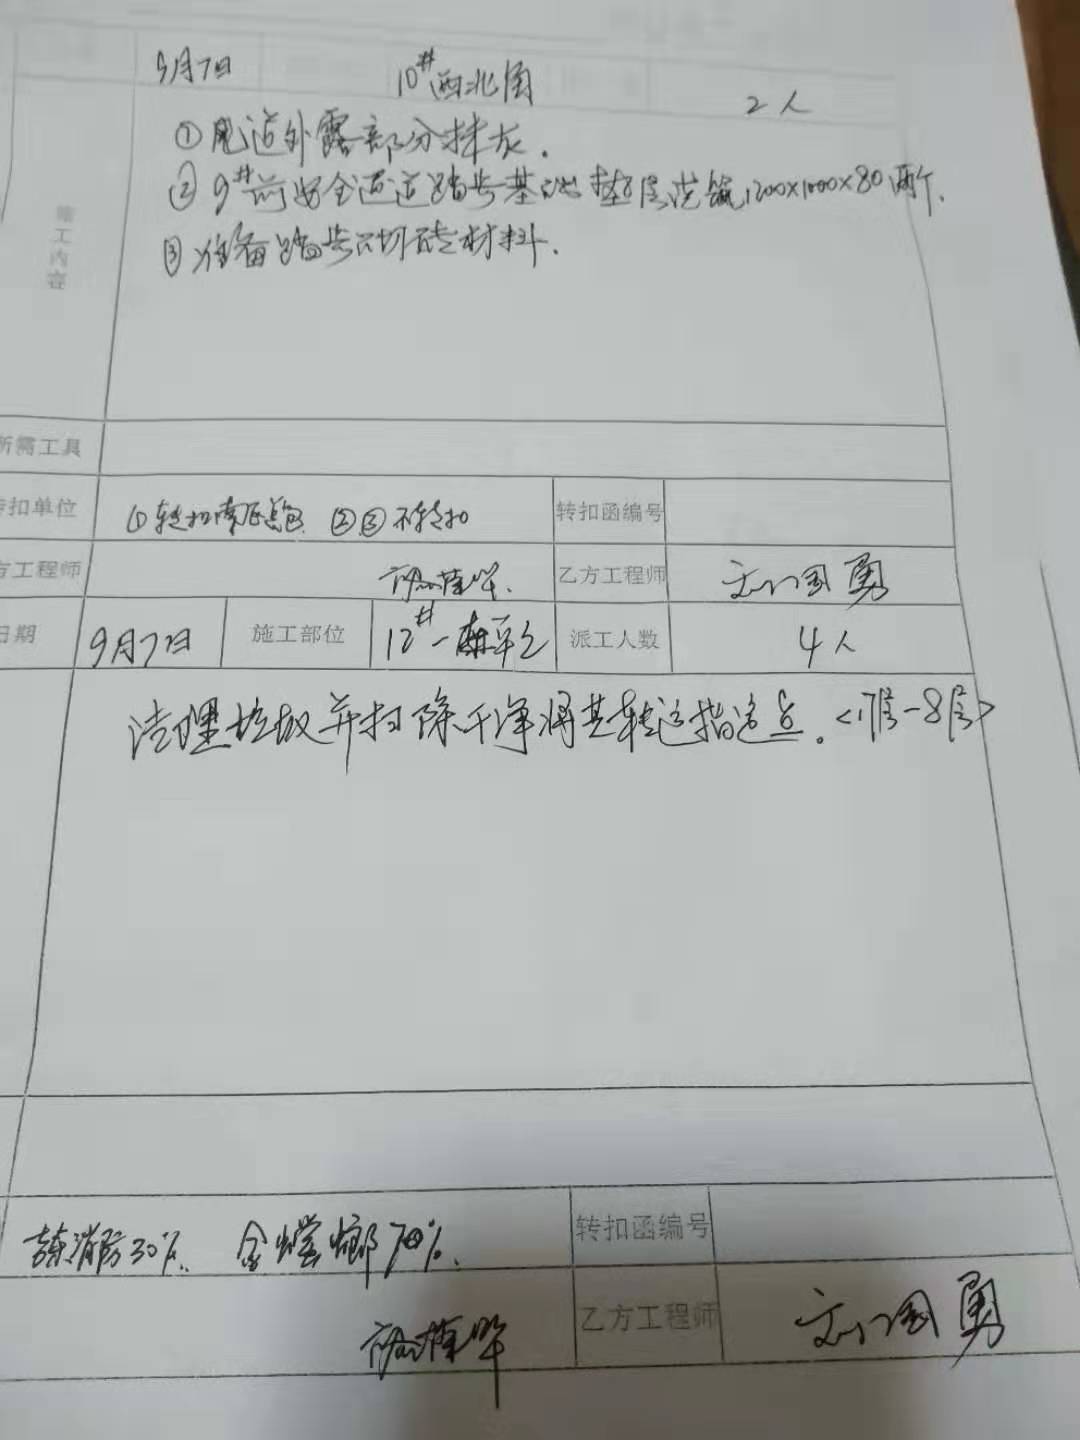 9月7日 10#西北角 2人
①甩道外露部分抹灰.
施工内容 ②9#前安全通道踏步基础垫层浇筑1200×1000×80两个.
③准备踏步砌砖材料.
所需工具
转扣单位 ①转扣 ②③不转扣 转扣函编号
方工程师 乙方工程师
日期 9月7日 施工部位 12# 派工人数 4人
清理垃圾并扫除干净将其转运指定点.<17层-8层>
消防30%. 70%. 转扣函编号
乙方工程师